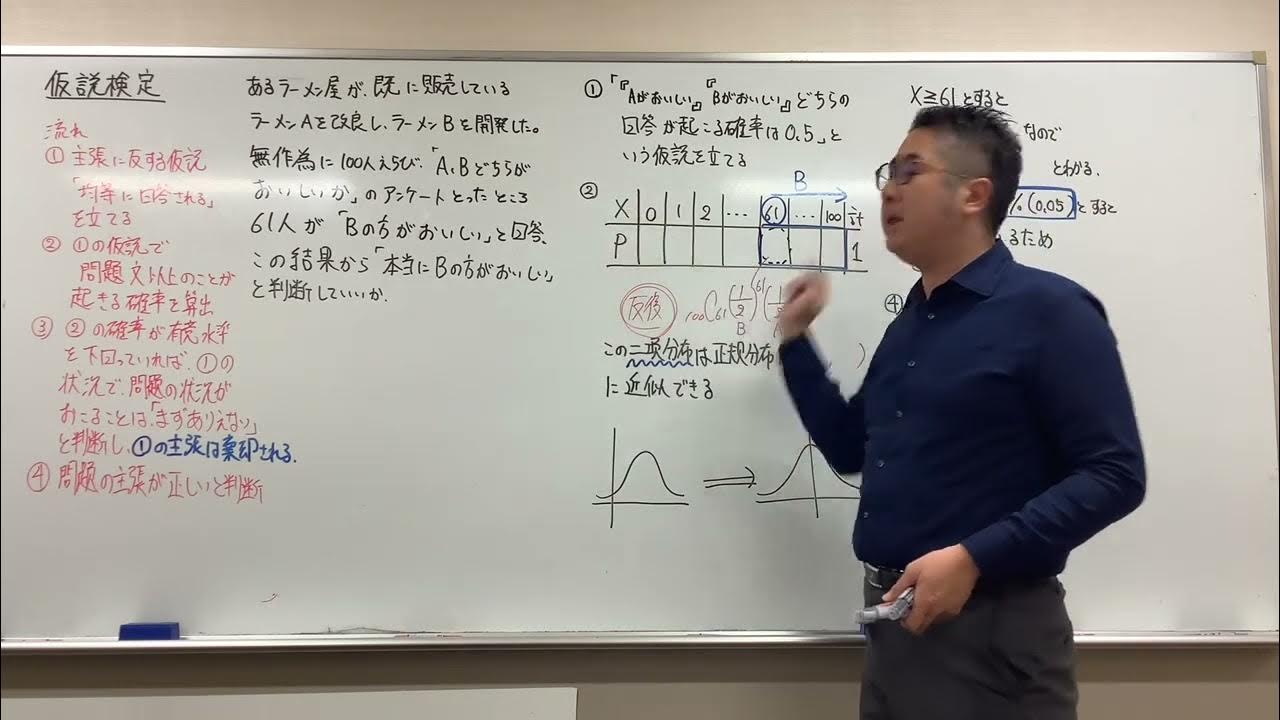 仮説検定
流れ
① 主張に反する仮説
「均等に回答される」
を立てる
② ①の仮説で
問題文以上のことが
起きる確率を算出
③ ②の確率が有意水準
を下回っていれば、①の
状況で、問題の状況が
おこることは、「まずありえない」
と判断し、①の主張は棄却される.
④ 問題の主張が正しいと判断
あるラーメン屋が、既に販売している
ラーメンAを改良し、ラーメンBを開発した。
無作為に100人えらび、「A、Bどちらが
おいしいか」のアンケートとったところ
61人が「Bの方がおいしい」と回答、
この結果から「本当にBの方がおいしい」
と判断していいか.
① 「『Aがおいしい』『Bがおいしい』どちらの
回答が起こる確率は0.5」と
いう仮説を立てる
②
B
X 0 1 2 … 61 … 100 計
P 1
反復 100C61(1/2)^61(1
B
この二項分布は正規分布 )
に近似できる
X≧61とすると
なので
とわかる.
% (0.05)とすると
るため
④